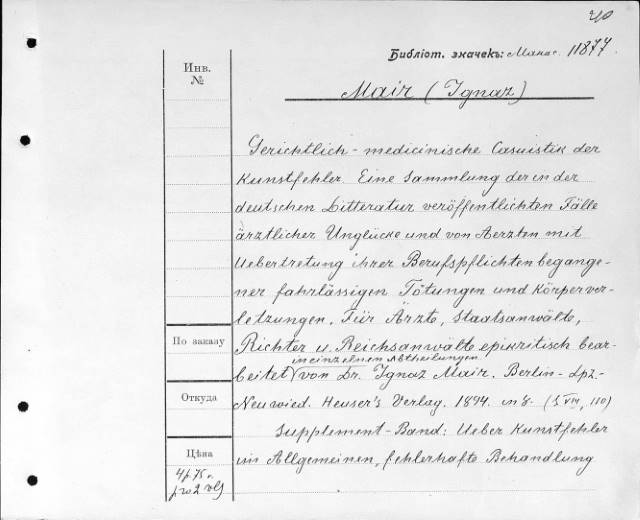 210
Библіот. значекъ: Макс. 11877.
Инв.
№
Mair (Ignaz)
Gerichtlich-medicinische Casuistik der
Kunstfehler. Eine Sammlung der in der
deutschen Litteratur veröffentlichten Fälle
ärztlicher Unglücke und von Aerzten mit
Uebertretung ihrer Berufspflichten begange-
ner fahrlässigen Tötungen und Körperver-
letzungen. Für Ärzte, Staatsanwälte,
По заказу
Richter u. Reichsanwälte epikritisch bear-
in einzelnen Abtheilungen
beitet von Dr. Ignaz Mair. Berlin-Lpz.-
Откуда
Neuwied. Heuser's Verlag. 1894. in 8. (S. VIII, 110)
Supplement-Band: Ueber Kunstfehler
Цѣна
im Allgemeinen, fehlerhafte Behandlung
4f. 75 c.
pro 2 vls